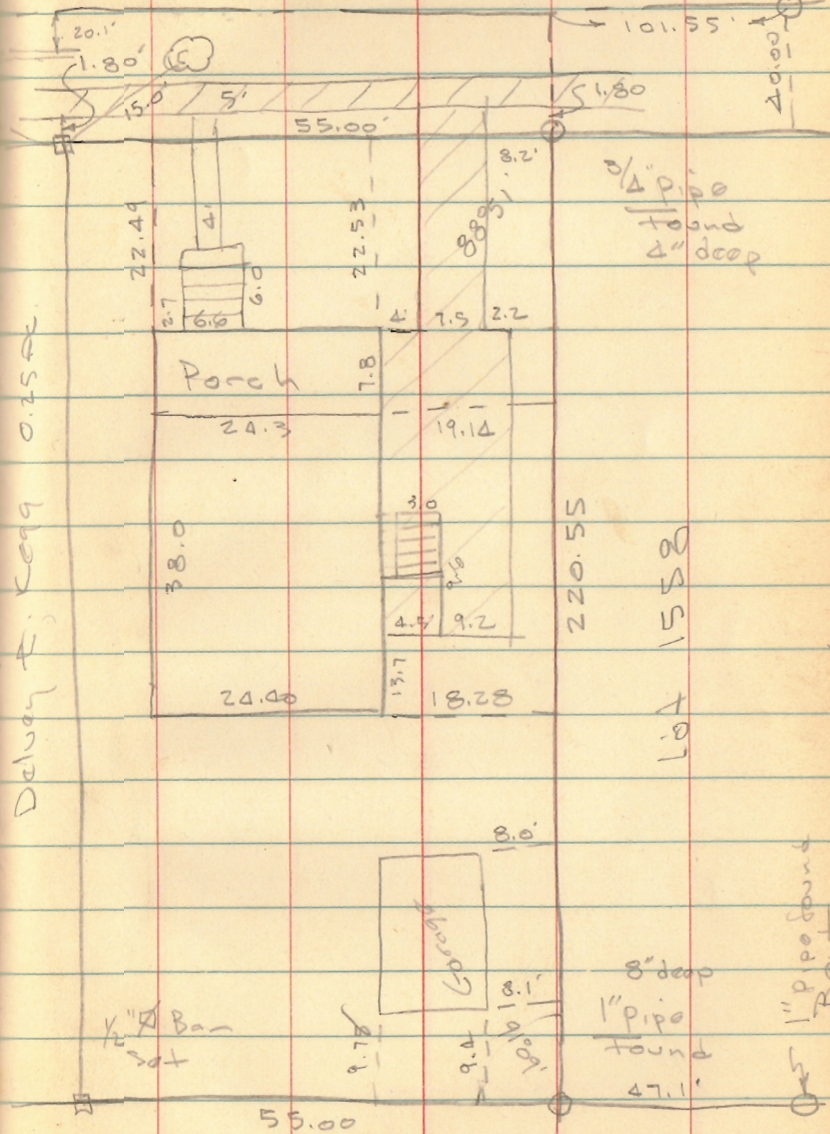 20.1'
101.55'
1.80'
40.00
15.0'
5'
1.80
55.00'
8.2'
3/4" pipe
found
4" deep
22.49
4'
22.53
2.7
6.6
6.0
4'
7.5
2.2
Porch
7.8
24.3
19.14
0.25 Ac
3.0
38.0
220.55
Lot 1558
4.5'
9.2
13.7
24.40
18.28
8.0'
Garage
8.1'
8" deep
1" pipe
found
1" pipe found
1/2" Bar
Set
9.78
9.4
47.1'
55.00